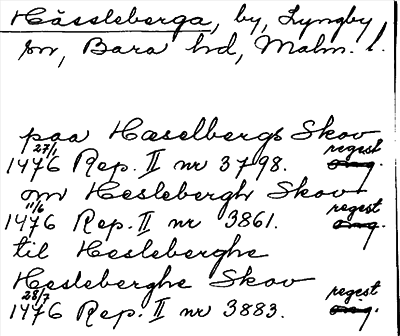 Hässleberga, by, Lyngby
sn, Bara hd, Malm. l.
paa Hæselbergs Skov
27/1 1476 Rep. II nr 3798. regest
om Heslebergh Skov
11/6 1476 Rep. II nr 3861. regest
til Hesleberghe
Hesleberghe Skov
28/7 1476 Rep. II nr 3883. regest